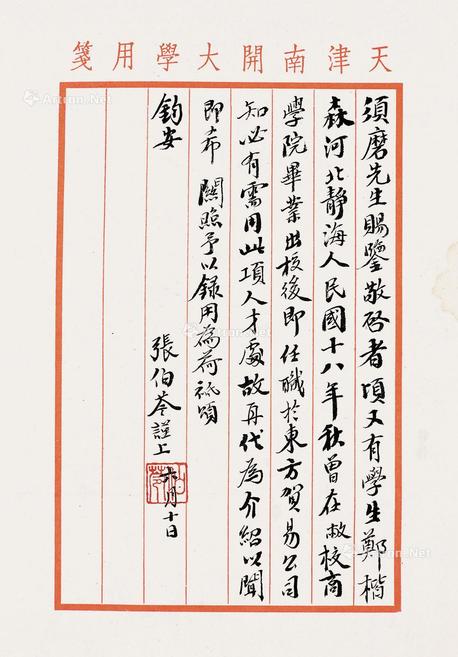 天津南開大學用箋
須磨先生賜鑒敬啓者頃又有學生鄭楷
森河北靜海人民國十八年秋曾在敝校商
學院畢業出校後即任職於東方貿易公司
知必有需用此項人才處故再代為介紹以聞
即希 關照予以錄用為荷祗頌
鈞安
張伯苓謹上
六月十日
Artron.Net
Artron.Net
Artron.Net
Artron.Net